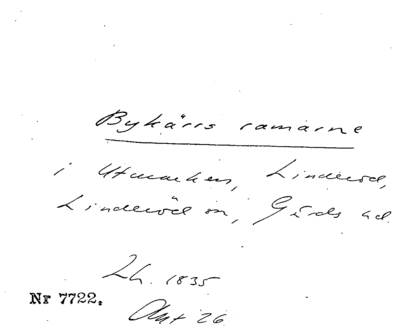 Bykärrs ramarne
i Utmarken, Linderöd,
Linderöd sn, Gärds hd.
Lh. 1835
Nr 7722.
Akt 26